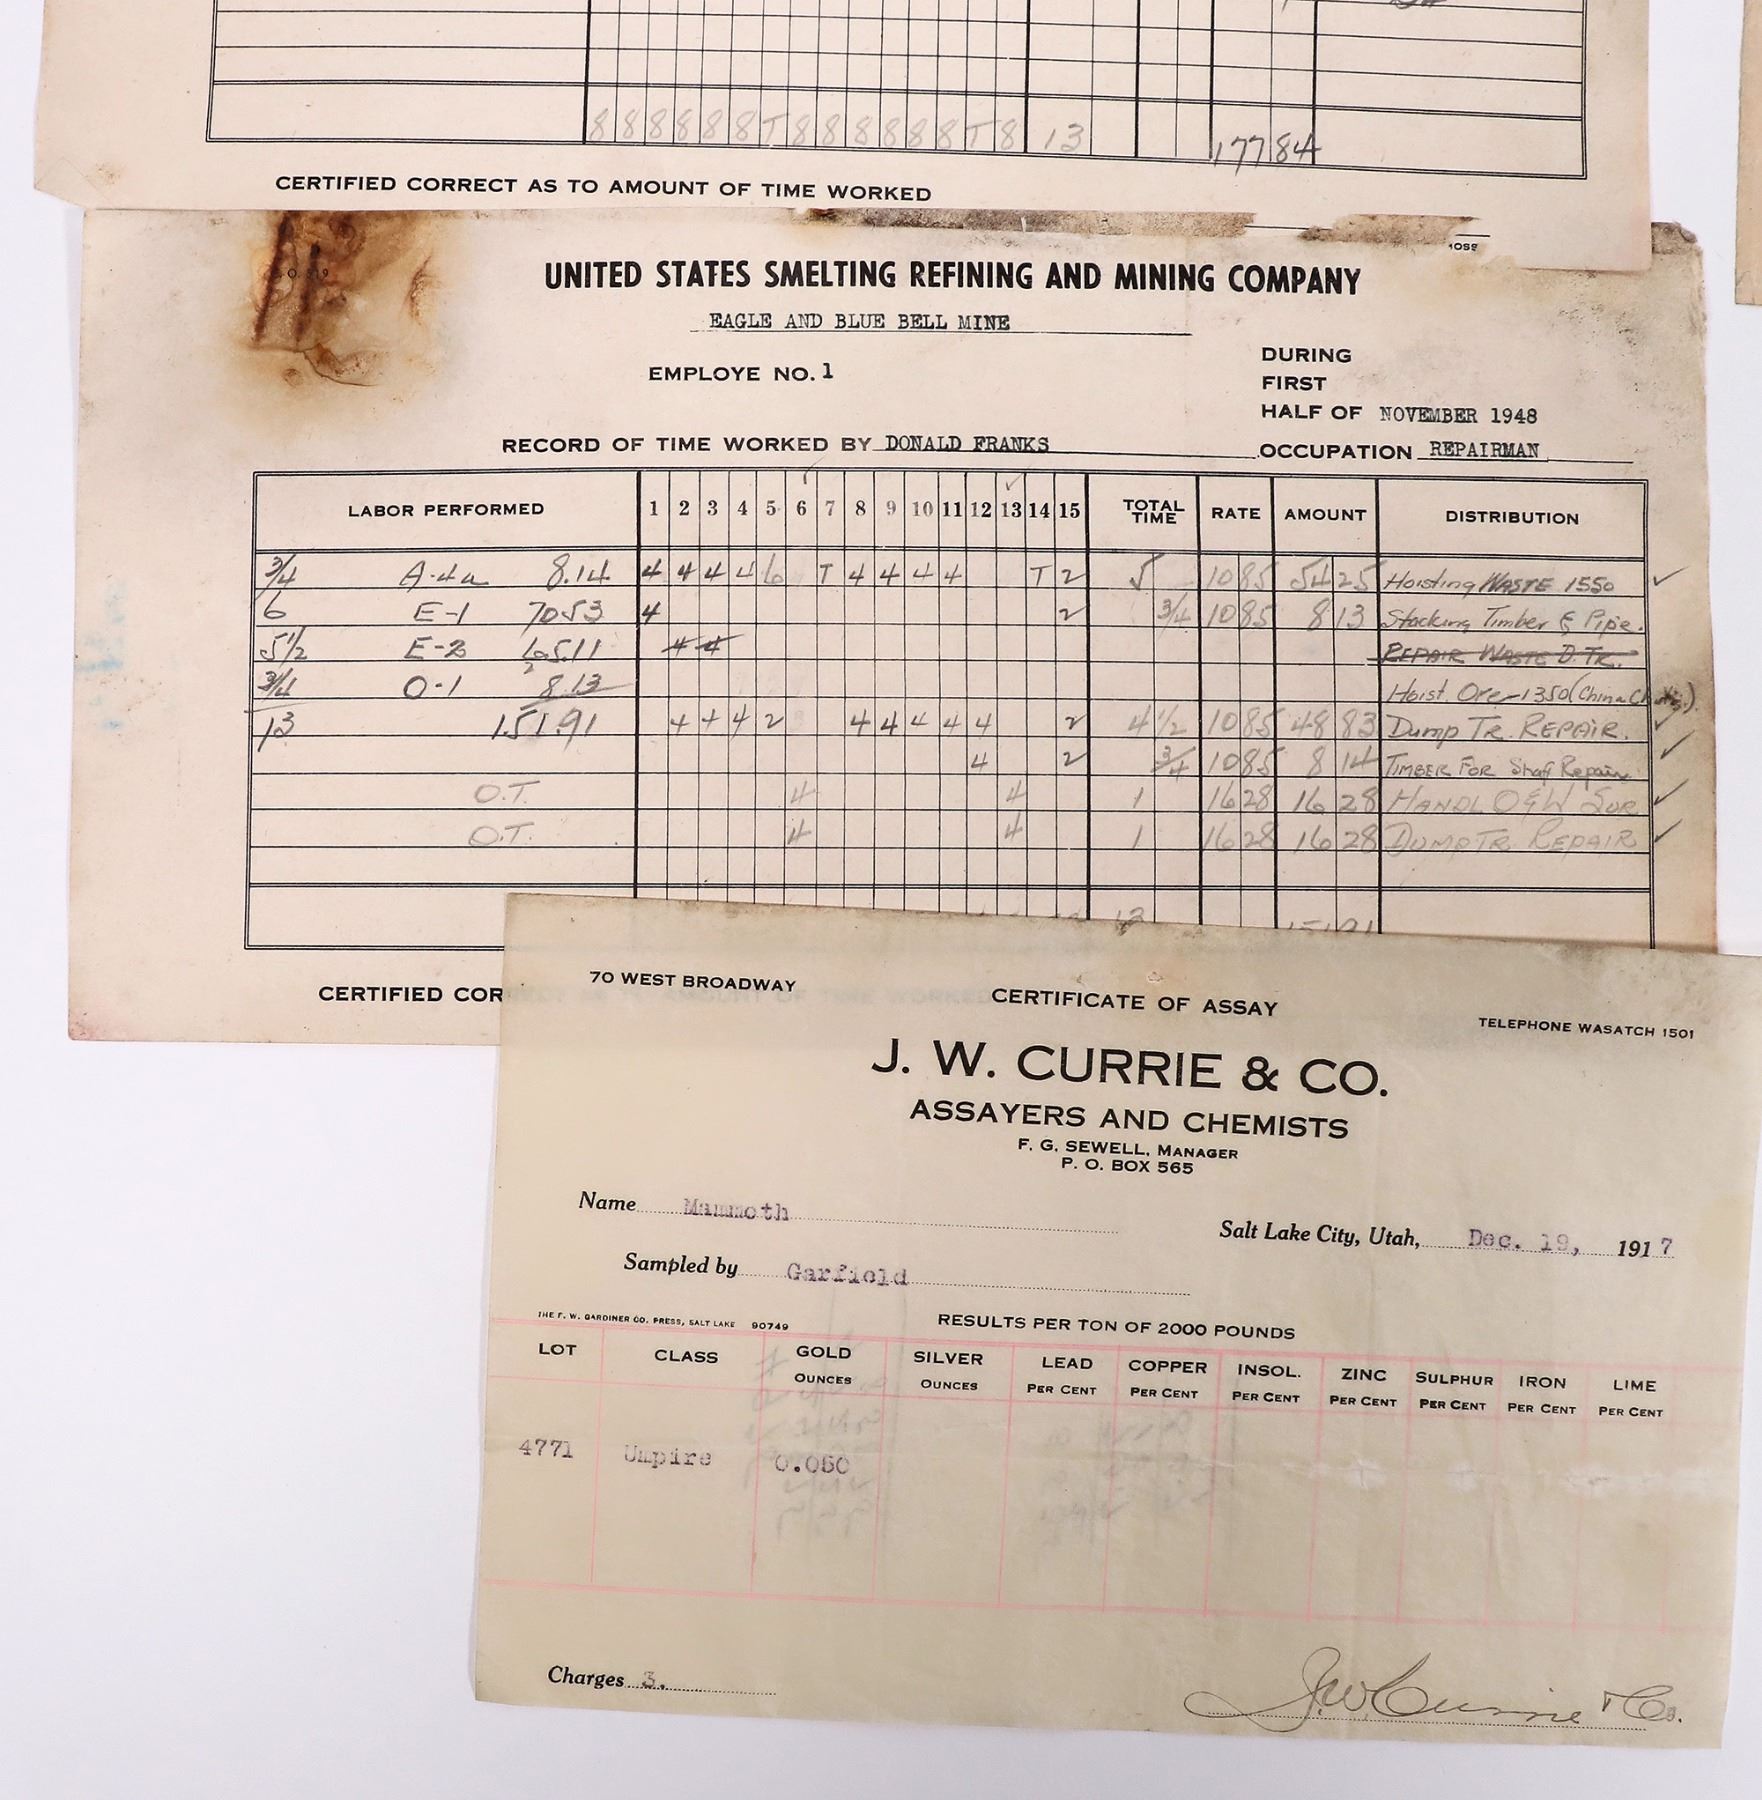 8 8 8 8 8 8 T 8 8 8 8 8 8 T 8 13 177 84
CERTIFIED CORRECT AS TO AMOUNT OF TIME WORKED
UNITED STATES SMELTING REFINING AND MINING COMPANY
EAGLE AND BLUE BELL MINE
EMPLOYE NO. 1
DURING
FIRST
HALF OF NOVEMBER 1948
RECORD OF TIME WORKED BY DONALD FRANKS
OCCUPATION REPAIRMAN
LABOR PERFORMED 1 2 3 4 5 6 7 8 9 10 11 12 13 14 15 TOTAL TIME RATE AMOUNT DISTRIBUTION
3/4 A-4a 8.14 4 4 4 4 6 T 4 4 4 4 T 2 5 10 85 54 25 Hoisting WASTE 1550
6 E-1 70 53 4 2 3/4 10 85 8 13 Stacking Timber & Pipe.
5 1/2 E-2 65.11 4 4 REPAIR WASTE D. TR.
3/4 O-1 8.13 Hoist. Ore-1350 (China
13 151.91 4 4 4 2 4 4 4 4 4 2 4 1/2 10 85 48 83 Dump TR. REPAIR.
4 2 3/4 10 85 8 14 TIMBER FOR Shaft Repairs
O.T. 4 4 1 16 28 16 28 HANDL O&W SUR
O.T. 4 4 1 16 28 16 28 DUMP TR REPAIR
CERTIFIED COR
70 WEST BROADWAY
CERTIFICATE OF ASSAY
TELEPHONE WASATCH 1501
J. W. CURRIE & CO.
ASSAYERS AND CHEMISTS
F. G. SEWELL, MANAGER
P. O. BOX 565
Name Mammoth
Salt Lake City, Utah, Dec. 19, 1917
Sampled by Garfield
THE F. W. GARDINER CO. PRESS, SALT LAKE 90749
RESULTS PER TON OF 2000 POUNDS
LOT CLASS GOLD OUNCES SILVER OUNCES LEAD PER CENT COPPER PER CENT INSOL. PER CENT ZINC PER CENT SULPHUR PER CENT IRON PER CENT LIME PER CENT
4771 Umpire 0.050
Charges 3.
J.W. Currie & Co.